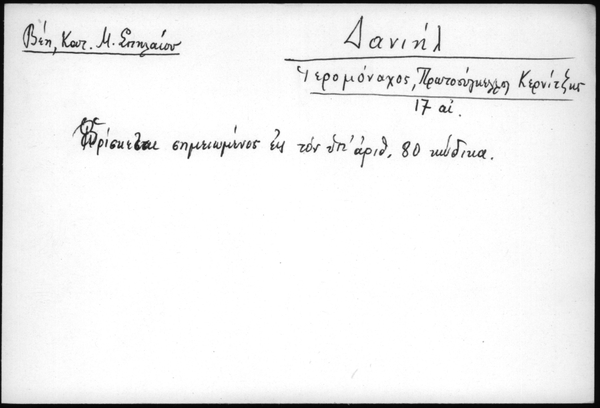 Βέη, Κατ. Μ. Σπηλαίου
Δανιήλ
Ἱερομόναχος, Πρωτοσύγκελλος Κερνίτζης
17 αἰ.
Εὑρίσκεται σημειωμένος εἰς τόν ὑπ' ἀριθ. 80 κώδικα.